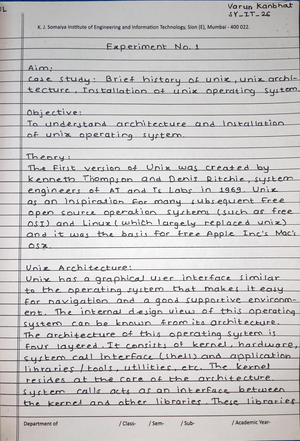 Varun Kanbhat
SY-IT-26
K. J. Somaiya Institute of Engineering and Information Technology, Sion (E), Mumbai - 400 022.
Experiment No. 1
Aim:
Case study: Brief history of unix, unix archi-
tecture, Installation of unix operating system.
Objective:
To understand architecture and Installation
of unix operating system.
Theory:
The First version of Unix was created by
Kenneth Thompson and Denis Ritchie, system
engineers of AT and Ts Labs in 1969. Unix
as an Inspiration for many subsequent Free
open source operation systems (such as free
OSI) and Linux (which largely replaced unix)
and it was the basis for free Apple Inc's Mac's
OSX.
Unix Architecture:
Unix has a graphical user interface similar
to the operating system that makes it easy
for navigation and a good supportive environm-
ent. The internal design view of this operating
system can be known from its architecture.
The architecture of this operating system is
four layered. It consists of kernel, hardware,
system call Interface (shell) and application
libraries / tools, utilities, etc. The kernel
resides at the core of the architecture
system calls acts as an interface between
the kernel and other libraries. These libraries
Department of / Class- / Sem- / Sub- / Academic Year-